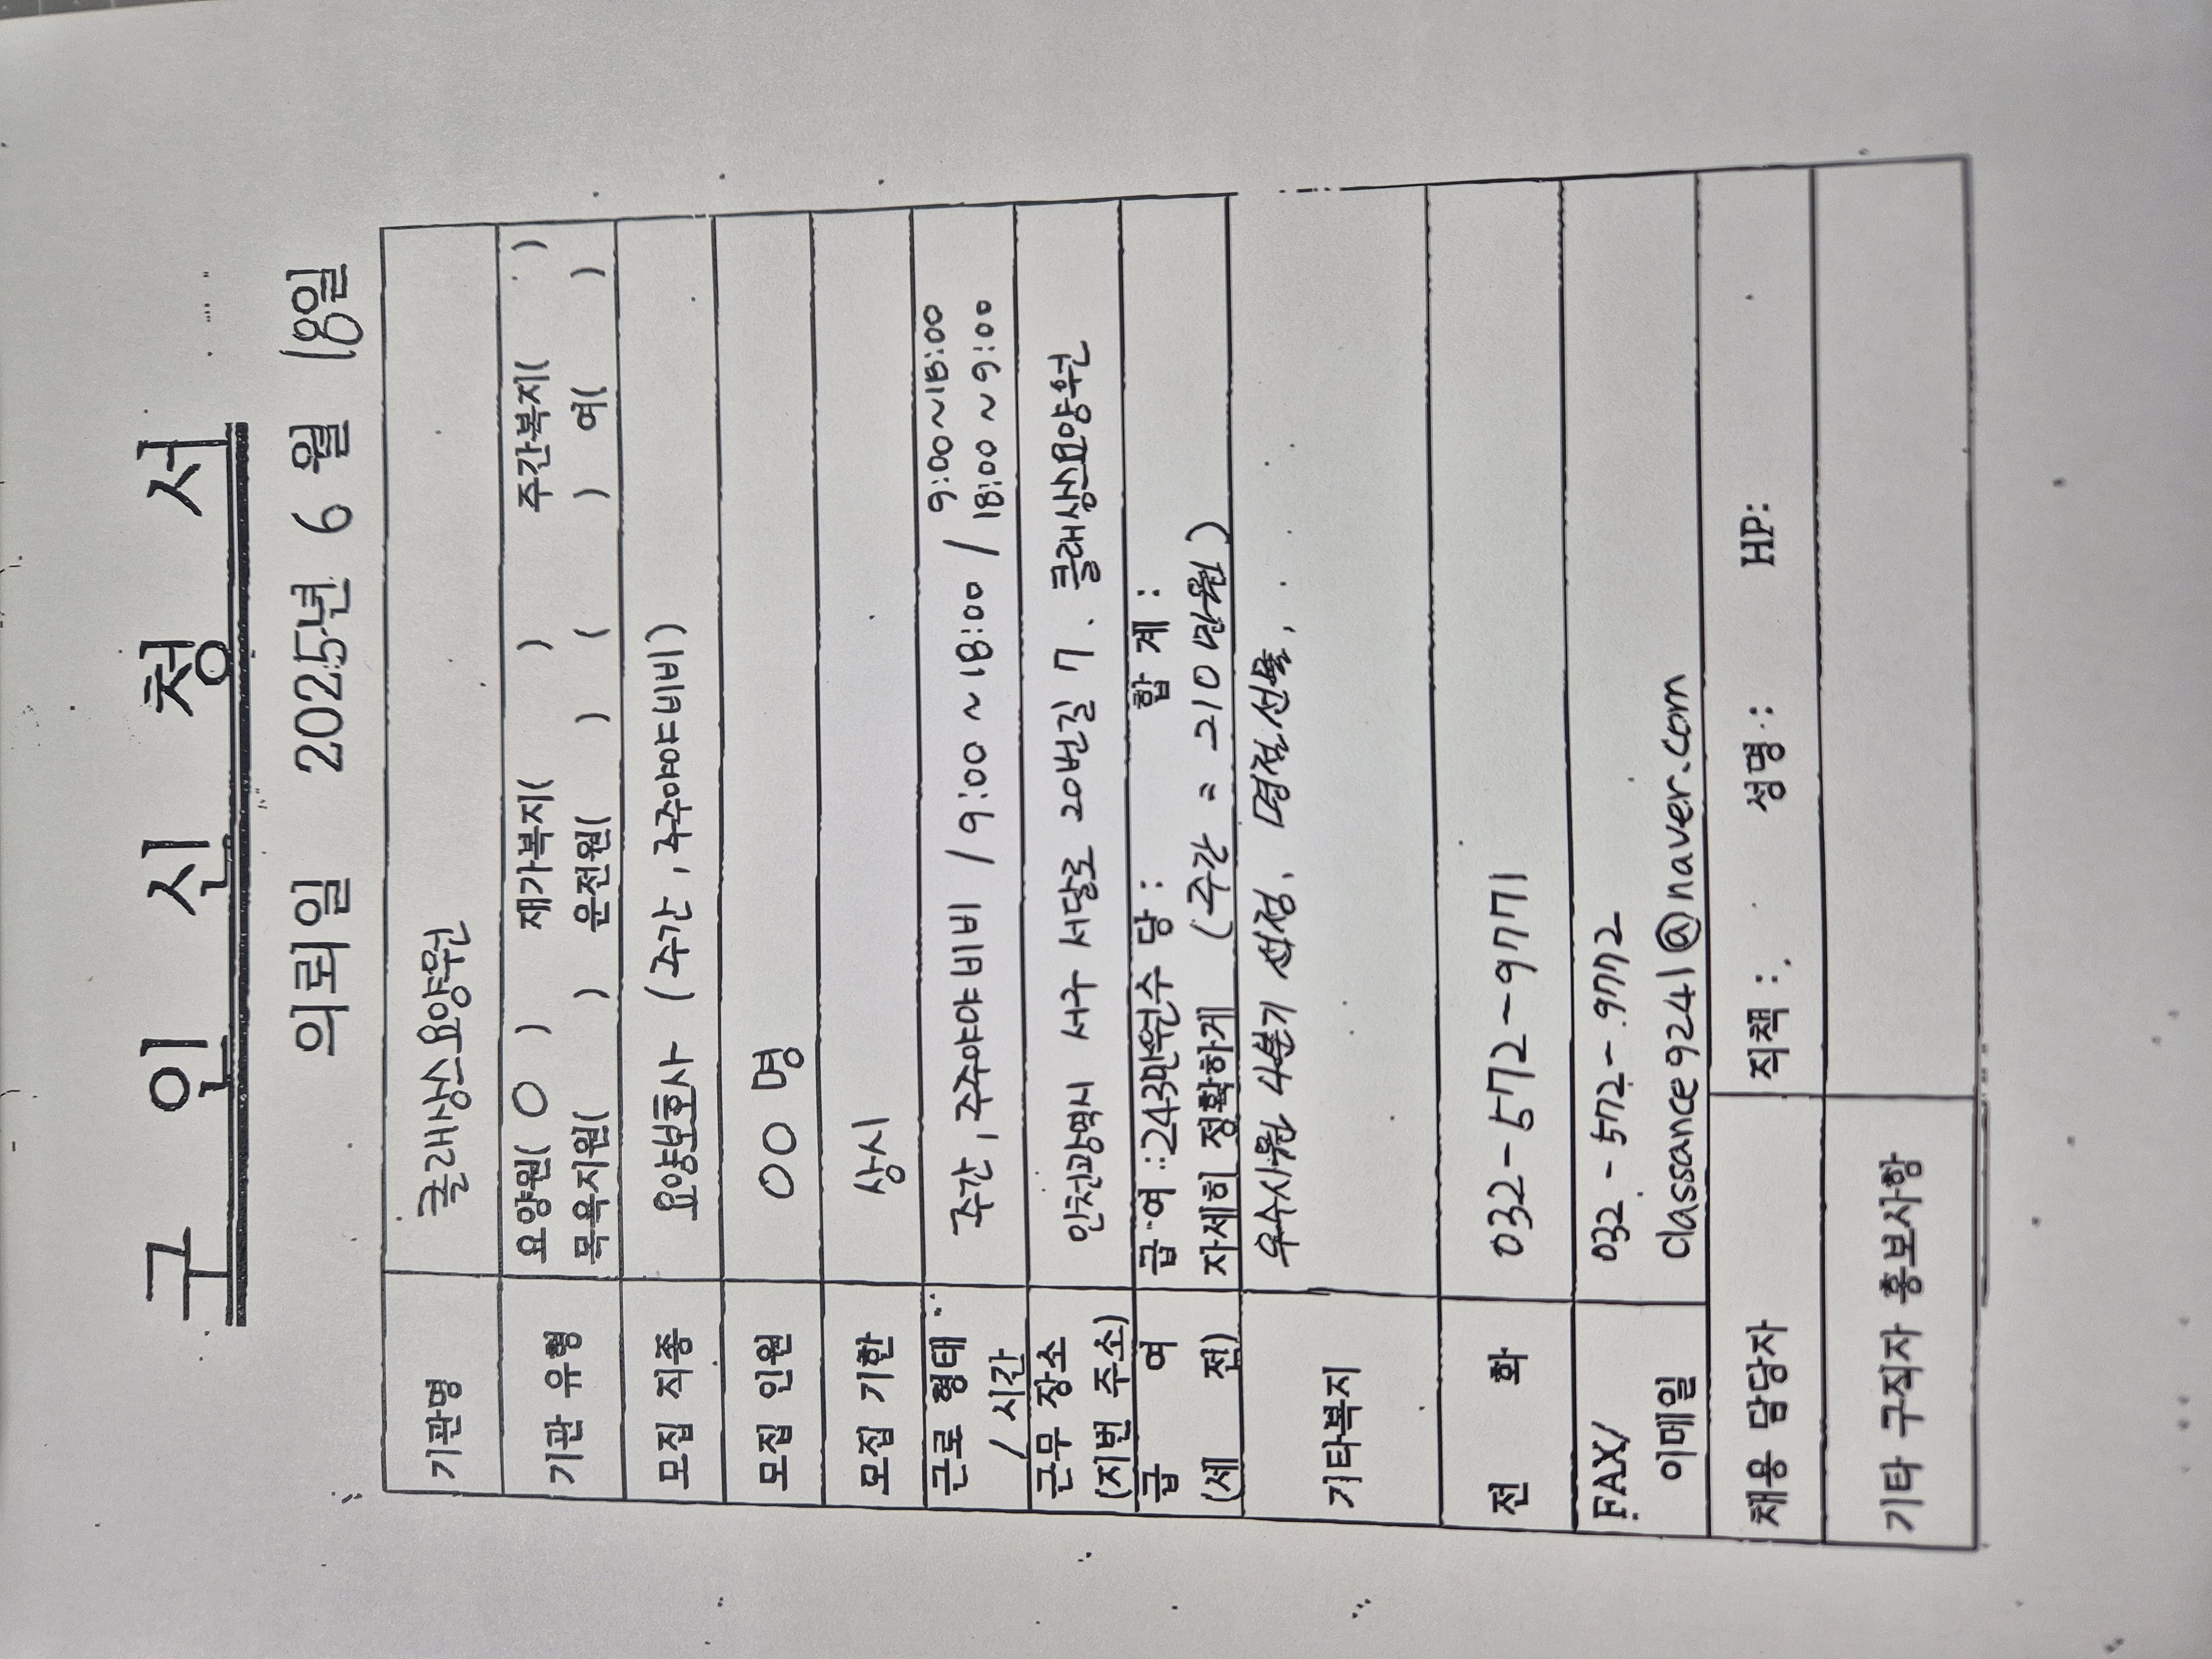 구 인 신 청 서
의뢰일 2025년 6 월 18일
기관명 클래상스요양원
기관 유형 요양원( O ) 재가복지( ) 주간복지( )
목욕지원( ) 운전원( ) ( ) 여( )
모집 직종 요양보호사 (주간, 주주야야비비)
모집 인원 00 명
모집 기한 상시
근로 형태 / 시간 주간, 주주야야비비 / 9:00~18:00 / 9:00~18:00
18:00~9:00
근무 장소 (지번 주소) 인천광역시 서구 서달로 20번길 7. 클래상스요양원
급 여 급 여 : 243만원 수 당 : 합 계 :
(세 전) 자세히 정확하게 (주간 = 210만원)
기타복지 우수사원 4분기 선정, 명절선물,
전 화 032-572-9771
FAX/ 032-572-9772
이메일 classance9241@naver.com
채용 담당자 직책 : 성명 : HP:
기타 구직자 홍보사항